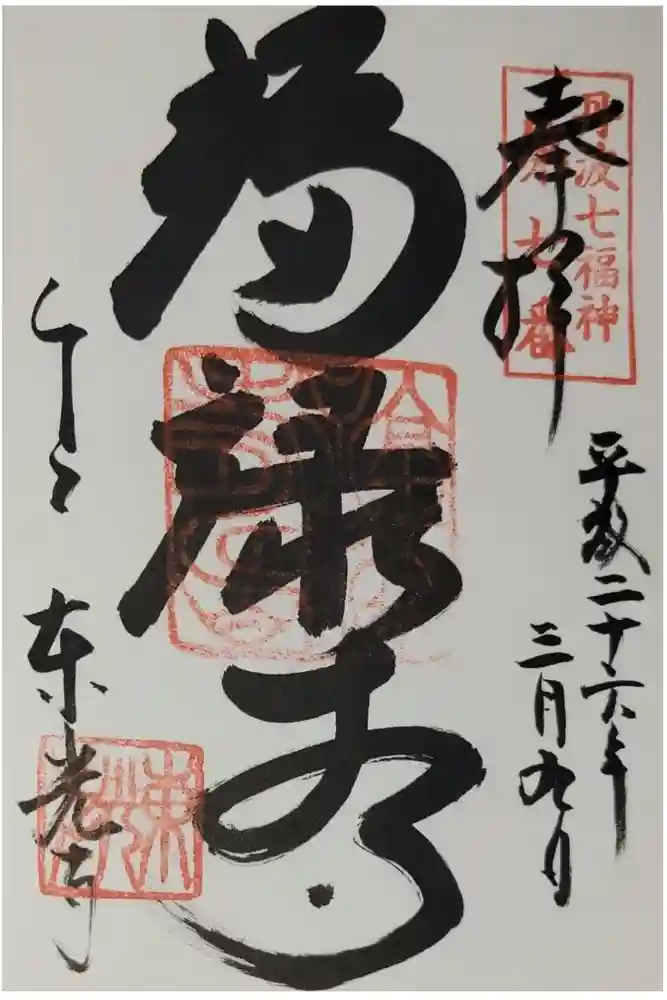 奉拝
丹波七福神
七番
平成二十六年
三月九日
福禄寿
東光寺